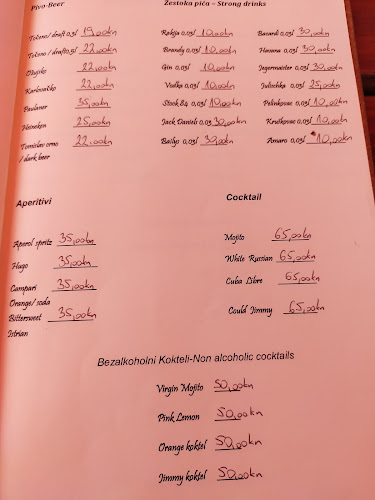 Pivo-Beer
Točeno / draft 0,3l 19,00kn
Točeno / draft 0,5l 22,00kn
Ožujsko 22,00kn
Karlovačko 22,00kn
Paulaner 35,00kn
Heineken 25,00kn
Tomislav crno 22,00kn
/ dark beer
Žestoka pića – Strong drinks
Rakija 0,03l 10,00kn
Brandy 0,03l 10,00kn
Gin 0,03l 10,00kn
Vodka 0,03l 10,00kn
Stock 84 0,03l 10,00kn
Jack Daniels 0,03 30,00kn
Bailys 0,03l 30,00kn
Bacardi 0,03l 30,00kn
Havana 0,03l 30,00kn
Jegermeister 0,03l 30,00kn
Julischka 0,03l 25,00kn
Pelinkovac 0,03l 10,00kn
Kruškovac 0,03l 10,00kn
Amaro 0,03l 10,00kn
Aperitivi
Aperol spritz 35,00kn
Hugo 35,00kn
Campari 35,00kn
Orange/ soda
Bittersweet 35,00kn
Istrian
Cocktail
Mojito 65,00kn
While Russian 65,00kn
Cuba Libre 65,00kn
Could Jimmy 65,00kn
Bezalkoholni Kokteli-Non alcoholic cocktails
Virgin Mojito 50,00kn
Pink Lemon 50,00kn
Orange koktel 50,00kn
Jimmy koktel 50,00kn